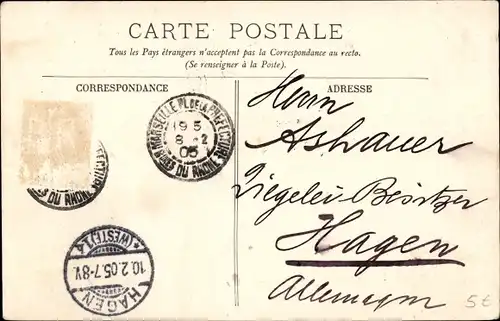 CARTE POSTALE
Tous les Pays étrangers n'acceptent pas la Correspondance au recto.
(Se renseigner à la Poste).
CORRESPONDANCE
ADRESSE
MARSEILLE PL. DE LA PREFECTURE
19 5
8 2
05
BOUCHES DU RHONE
DU RHONE
Herrn
Ashauer
Ziegelei-Besitzer
Hagen
Allemagne
(WESTF.) 1
10.2.05.7-8V.
HAGEN
5€